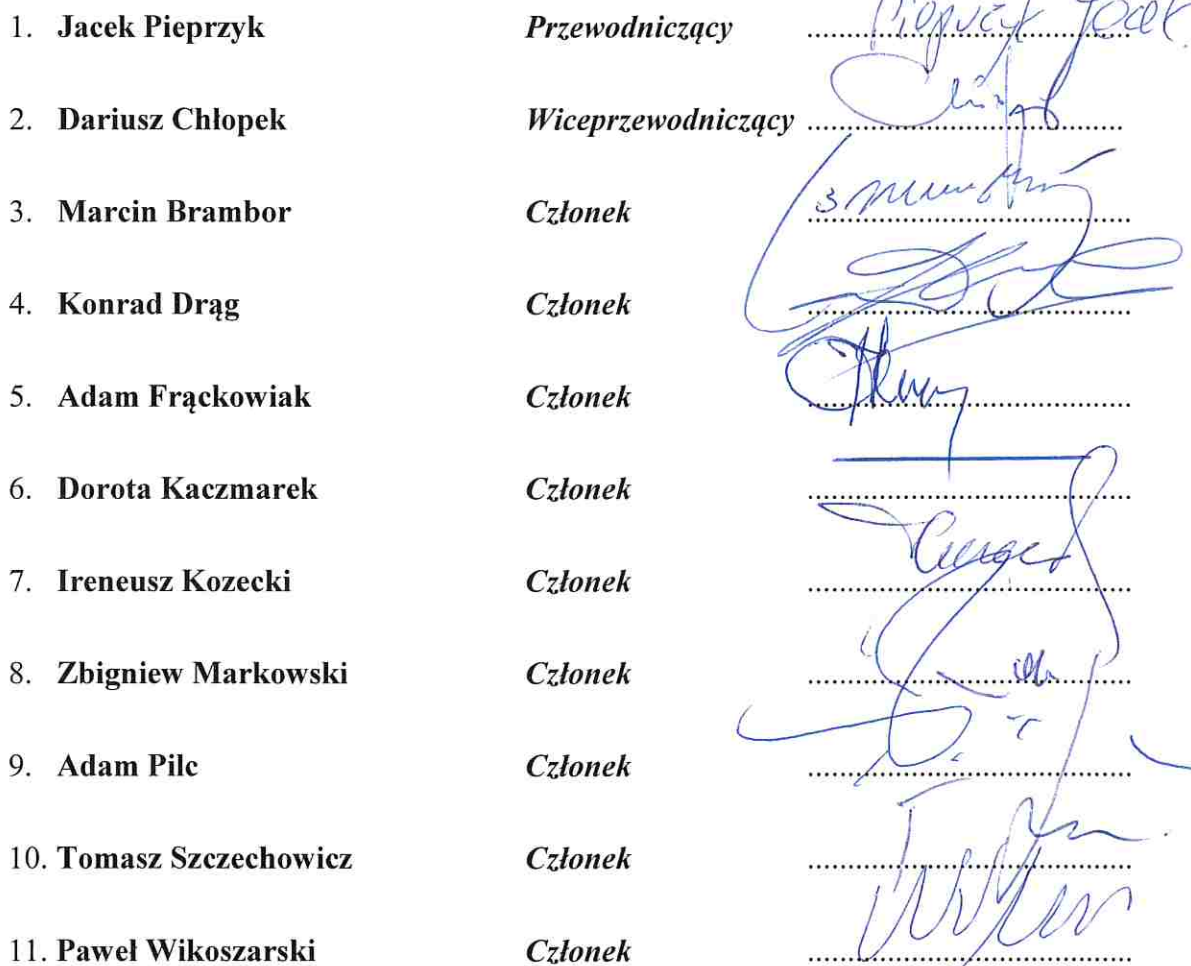 1. Jacek Pieprzyk Przewodniczący .......... Pieprzyk Jacek
2. Dariusz Chłopek Wiceprzewodniczący ..........
3. Marcin Brambor Członek ..........
4. Konrad Drąg Członek ..........
5. Adam Frąckowiak Członek ..........
6. Dorota Kaczmarek Członek ..........
7. Ireneusz Kozecki Członek ..........
8. Zbigniew Markowski Członek ..........
9. Adam Pilc Członek ..........
10. Tomasz Szczechowicz Członek ..........
11. Paweł Wikoszarski Członek ..........